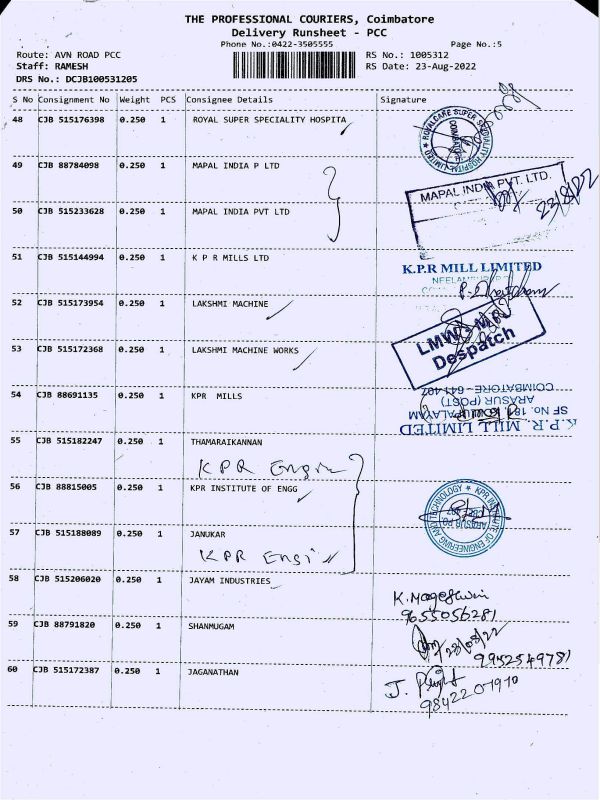 THE PROFESSIONAL COURIERS, Coimbatore
Delivery Runsheet - PCC
Phone No.:0422-3505555 Page No.:5
Route: AVN ROAD PCC RS No.: 1005312
Staff: RAMESH RS Date: 23-Aug-2022
DRS No.: DCJB100531205
S No Consignment No Weight PCS Consignee Details Signature
48 CJB 515176398 0.250 1 ROYAL SUPER SPECIALITY HOSPITA
ROYALCARE SUPER SPECIALITY HOSPITAL LIMITED
49 CJB 88784098 0.250 1 MAPAL INDIA P LTD
MAPAL INDIA PVT. LTD.
23/8/22
50 CJB 515233628 0.250 1 MAPAL INDIA PVT LTD
51 CJB 515144994 0.250 1 K P R MILLS LTD
K.P.R MILL LIMITED
52 CJB 515173954 0.250 1 LAKSHMI MACHINE
LMW - MPD
Despatch
53 CJB 515172368 0.250 1 LAKSHMI MACHINE WORKS
54 CJB 88691135 0.250 1 KPR MILLS
K.P.R. MILL LIMITED
ARASUR (POST)
COIMBATORE - 641 407
55 CJB 515182247 0.250 1 THAMARAIKANNAN
KPR Engi
56 CJB 88815005 0.250 1 KPR INSTITUTE OF ENGG
KPR INSTITUTE OF ENGINEERING AND TECHNOLOGY
57 CJB 515188089 0.250 1 JANUKAR
KPR Engi
58 CJB 515206020 0.250 1 JAYAM INDUSTRIES
K. Mageshwari
9655056281
59 CJB 88791820 0.250 1 SHANMUGAM
23/08/22
9952549781
60 CJB 515172387 0.250 1 JAGANATHAN
9842207970